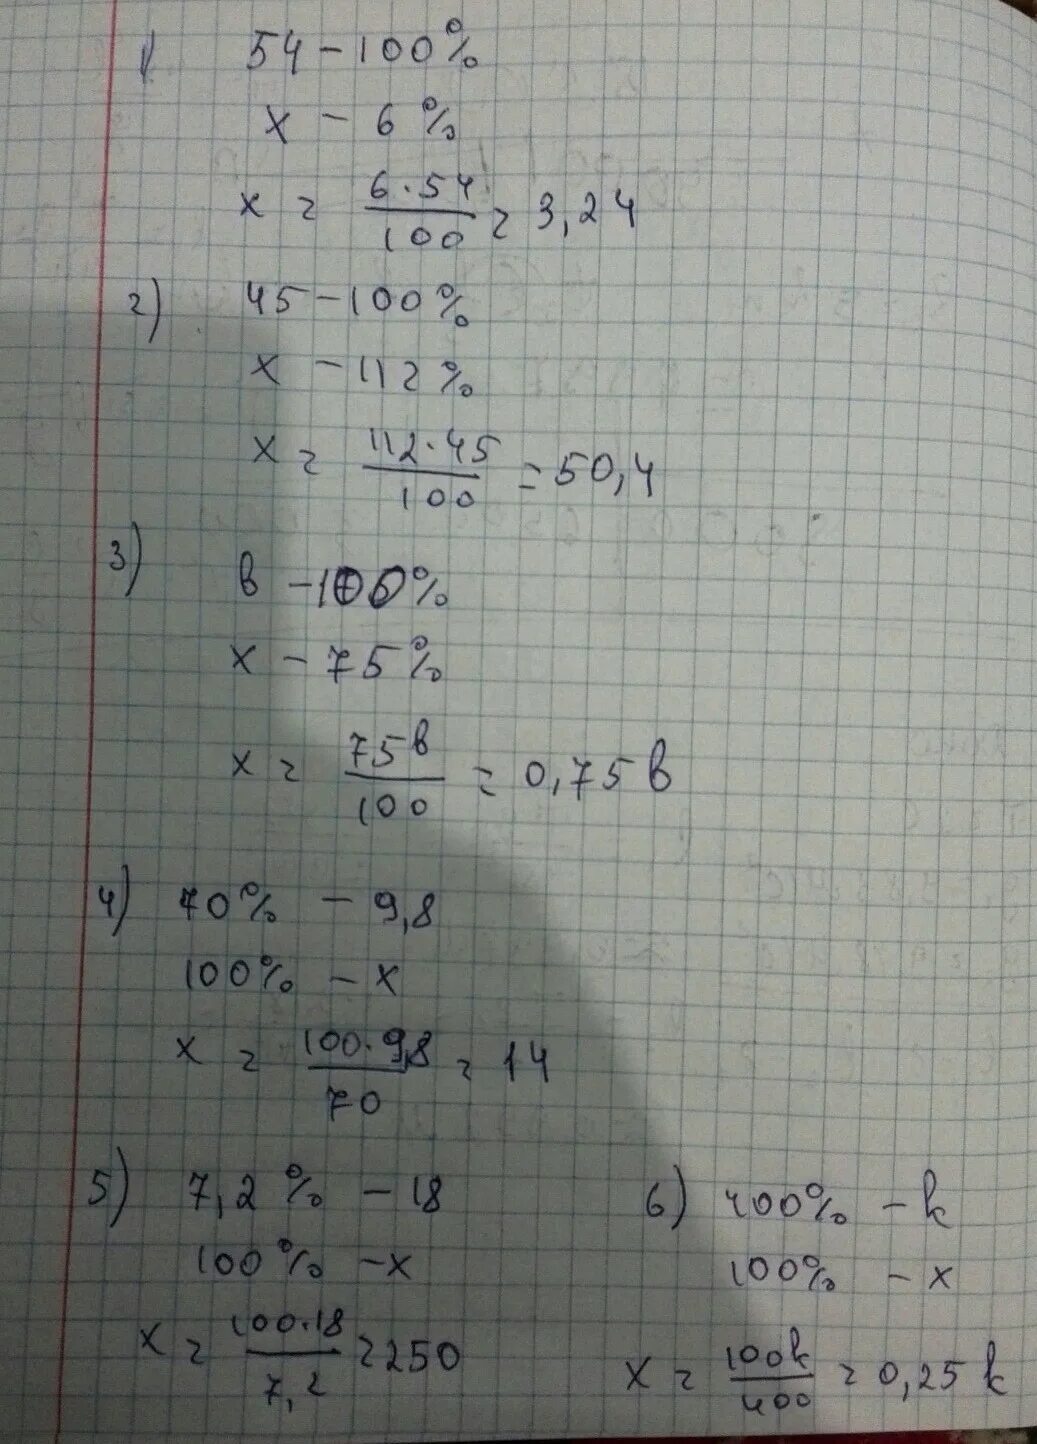 1) 54 - 100%
x - 6%
x = 6·54/100 = 3,24
2) 45 - 100%
x - 112%
x = 112·45/100 = 50,4
3) в - 100%
x - 75%
x = 75в/100 = 0,75в
4) 70% - 9,8
100% - x
x = 100·9,8/70 = 14
5) 7,2% - 18
100% - x
x = 100·18/7,2 = 250
6) 400% - k
100% - x
x = 100k/400 = 0,25k